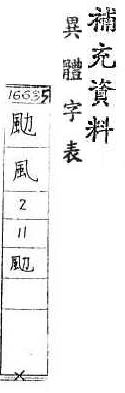 補充資料
異體字表
16635
風
2
11